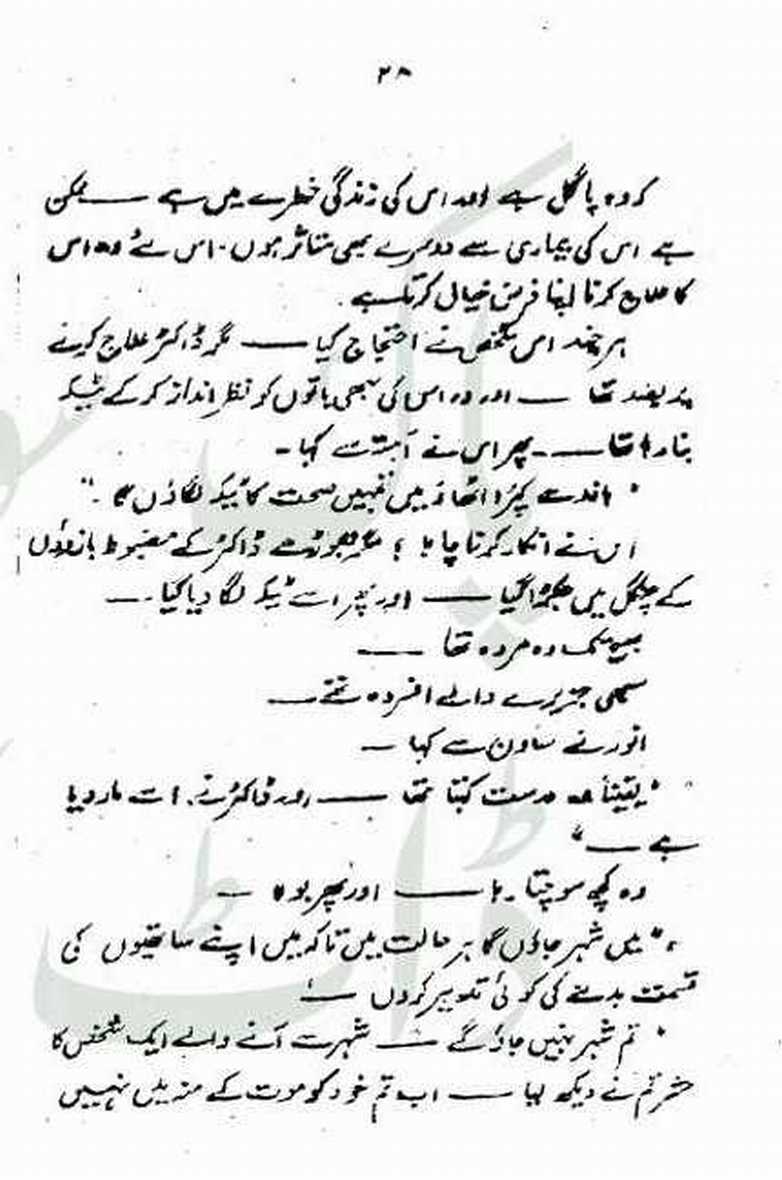 ۲۸
کہ وہ پاگل ہے اور اس کی زندگی خطرے میں ہے ــــ ممکن
ہے اس کی بیماری سے دوسرے بھی متاثر ہوں۔ اس لئے وہ اس
کا علاج کرنا اپنا فرض خیال کرتا ہے۔
ہر چند اس شخص نے احتجاج کیا ــــ مگر ڈاکٹر علاج کرنے
پر بضد تھا ــــ اور وہ اس کی سبھی باتوں کو نظر انداز کر کے ٹیکہ
بنا رہا تھا ــــ۔ پھر اس نے آہستہ سے کہا۔
" بازو سے کپڑا اٹھاؤ میں تمہیں صحت کا ٹیکہ لگاؤں گا۔"
اس نے انکار کرنا چاہا ؛ مگر وہ ڈاکٹر کے مضبوط بازوؤں
کے چنگل میں جکڑا گیا ــــ اور پھر اسے ٹیکہ لگا دیا گیا۔ــ
صبح تک وہ مردہ تھا ــــ
سبھی جزیرے والے افسردہ تھے ــــ
انور نے ساون سے کہا ــ
" یقیناً وہ درست کہتا تھا ــــ اور ڈاکٹر نے اسے مار دیا
ہے ــــ"
وہ کچھ سوچتا رہا ــــ اور پھر بولا ــ
" میں شہر جاؤں گا ہر حالت میں تاکہ میں اپنے ساتھیوں کی
قسمت بدلنے کی کوئی تدبیر کروں ــــ!
" تم شہر نہیں جاؤ گے ــــ شہر سے آنے والے ایک شخص کا
حشر تم نے دیکھ لیا ــــ اب تم خود کو موت کے منہ میں نہیں
پاک
ڈاٹ